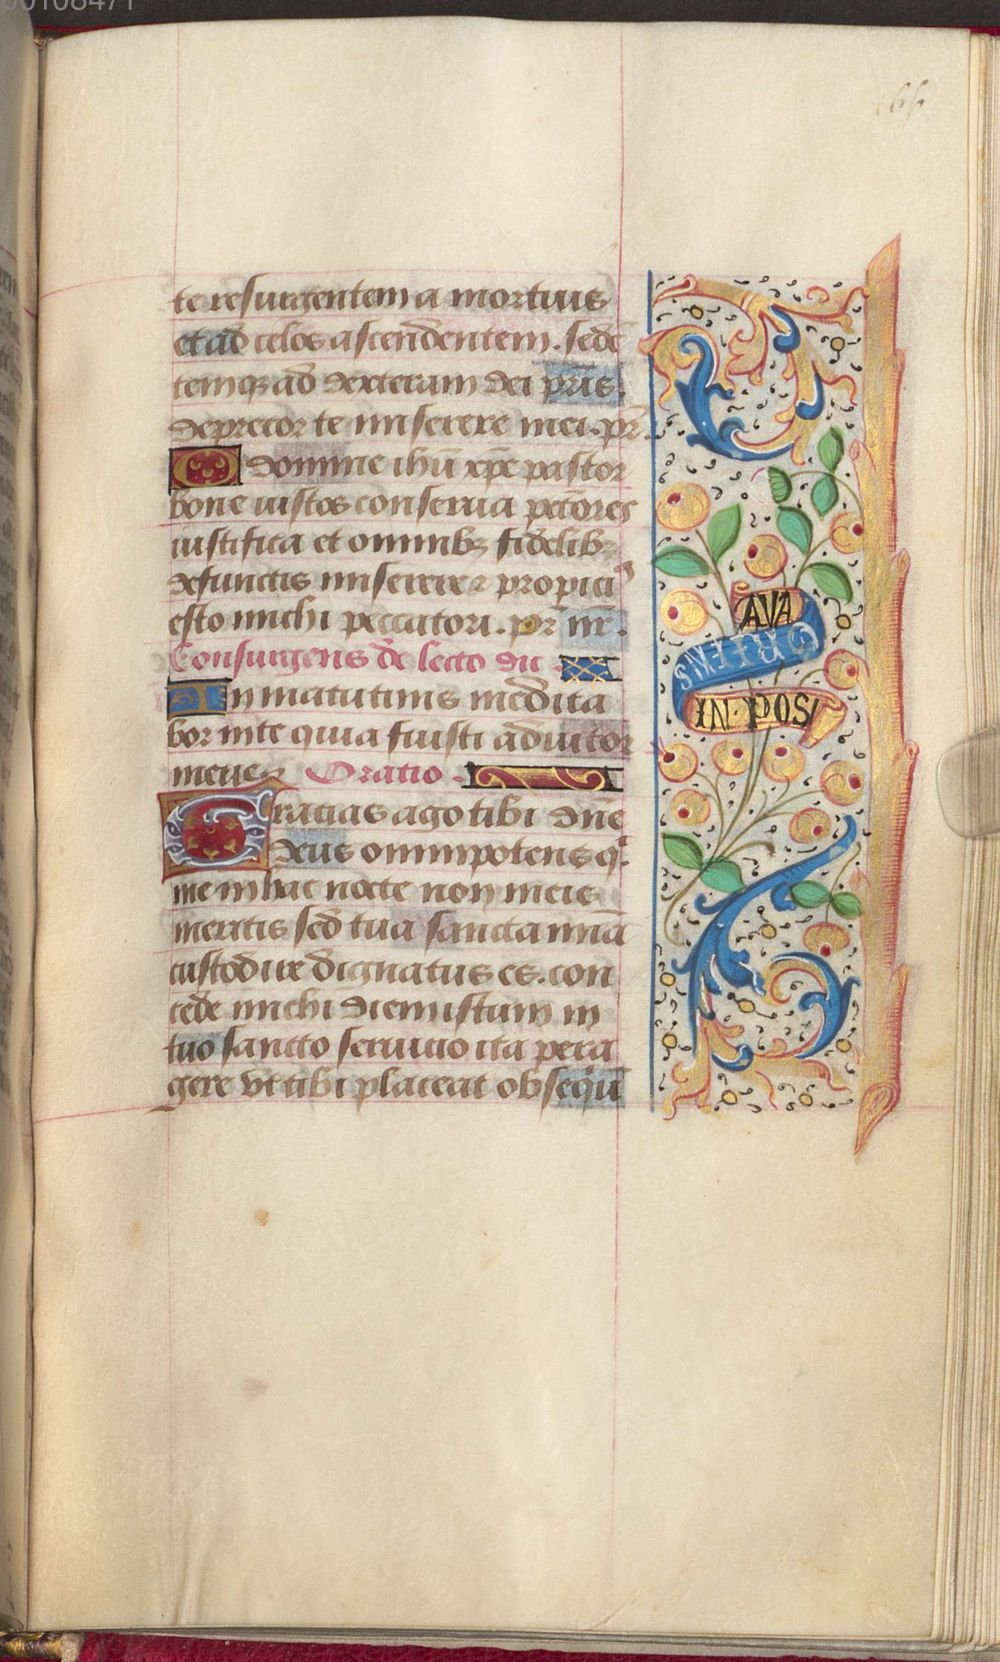 00108471
te resurgentem a mortuis
et ad celos ascendentem. sedē
temqȝ ad dexteram dei pr̄is.
deprecor te miserere mei. pr̄.
O domine ihū xp̄e pastor
bone iustos conserua pctores
iustifica et omnibȝ fidelibȝ
defunctis miserere ⁊ propici⁹
esto michi peccatori. pr̄ nr̄.
Consurgens de lecto dic
In matutinis medita
bor in te quia fuisti adiutor
meus Oratio
Gracias ago tibi dn̄e
deus omnipotens q
me in hac nocte non meis
meritis sed tua sancta mīa
custodire dignatus es. con
cede michi diem istum in
tuo sancto seruicio ita pera
gere vt tibi placeat obsequū
AVA
ORIENS
IN·POS